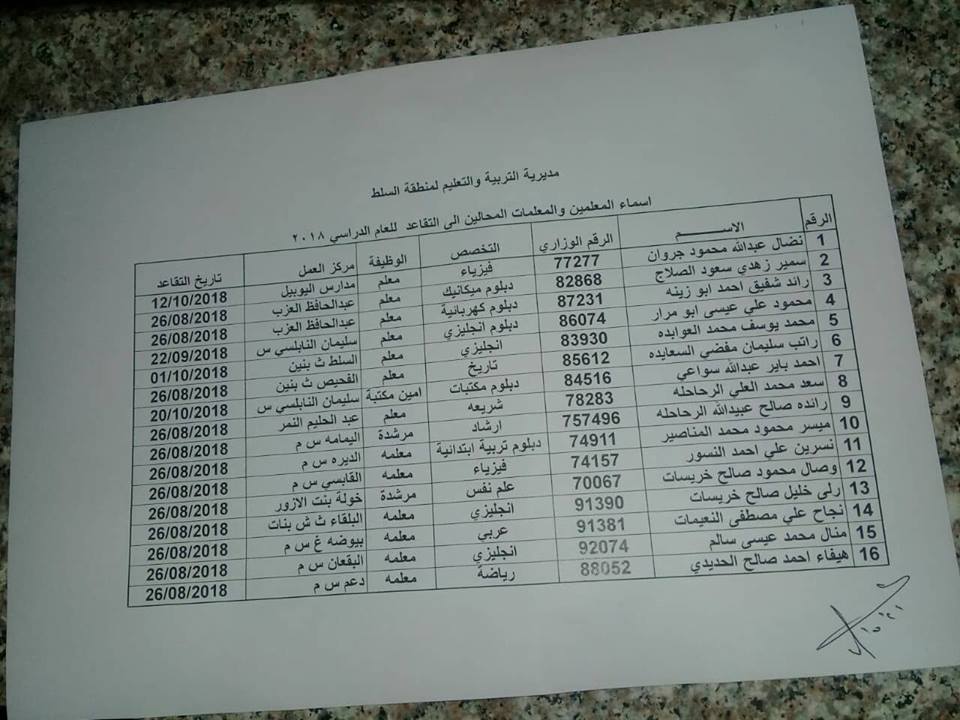 مديرية التربية والتعليم لمنطقة السلط
اسماء المعلمين والمعلمات المحالين الى التقاعد للعام الدراسي ٢٠١٨
الرقم الاســـــم الرقم الوزاري التخصص الوظيفة مركز العمل تاريخ التقاعد
1 نضال عبدالله محمود جروان 77277 فيزياء معلم مدارس اليوبيل 12/10/2018
2 سمير زهدي سعود الصلاج 82868 دبلوم ميكانيك معلم عبدالحافظ العزب 26/08/2018
3 رائد شفيق احمد ابو زينه 87231 دبلوم كهربائية معلم عبدالحافظ العزب 26/08/2018
4 محمود علي عيسى ابو مرار 86074 دبلوم انجليزي معلم سليمان النابلسي س 22/09/2018
5 محمد يوسف محمد العوابده 83930 انجليزي معلم السلط ث بنين 01/10/2018
6 راتب سليمان مفضي السعايده 85612 تاريخ معلم الفحيص ث بنين 26/08/2018
7 احمد باير عبدالله سواعي 84516 دبلوم مكتبات امين مكتبة سليمان النابلسي س 20/10/2018
8 سعد محمد العلي الرحاحله 78283 شريعه معلم عبد الحليم النمر 26/08/2018
9 رائده صالح عبيدالله الرحاحله 757496 ارشاد مرشدة اليمامه س م 26/08/2018
10 ميسر محمود محمد المناصير 74911 دبلوم تربية ابتدائية معلمه الديره س م 26/08/2018
11 نسرين علي احمد النسور 74157 فيزياء معلمه القابسي س م 26/08/2018
12 وصال محمود صالح خريسات 70067 علم نفس مرشدة خولة بنت الازور 26/08/2018
13 رلى خليل صالح خريسات 91390 انجليزي معلمه البلقاء ث ش بنات 26/08/2018
14 نجاح علي مصطفى النعيمات 91381 عربي معلمه بيوضه غ س م 26/08/2018
15 منال محمد عيسى سالم 92074 انجليزي معلمه البقعان س م 26/08/2018
16 هيفاء احمد صالح الحديدي 88052 رياضة معلمه دعم س م 26/08/2018